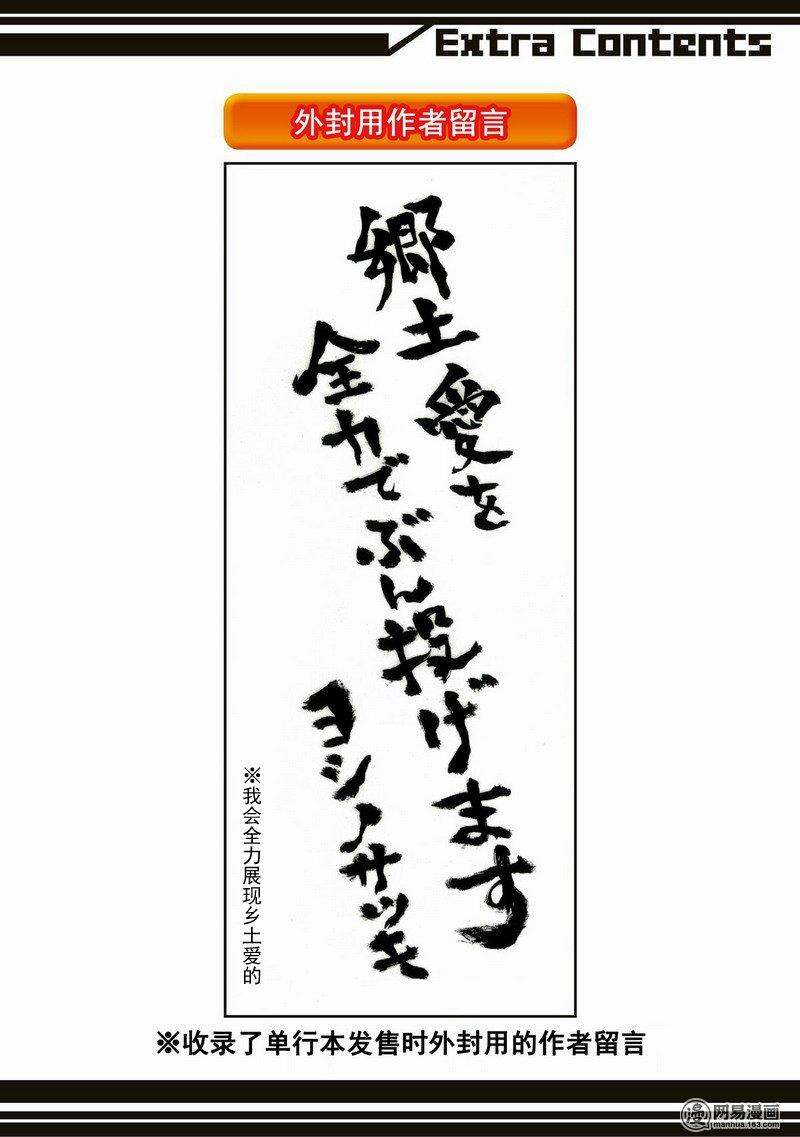 Extra Contents
外封用作者留言
郷土愛を
全力で
ぶん投げます
ヨシノサツキ
※我会全力展现乡土爱的
※收录了单行本发售时外封用的作者留言
漫 网易漫画
manhua.163.com